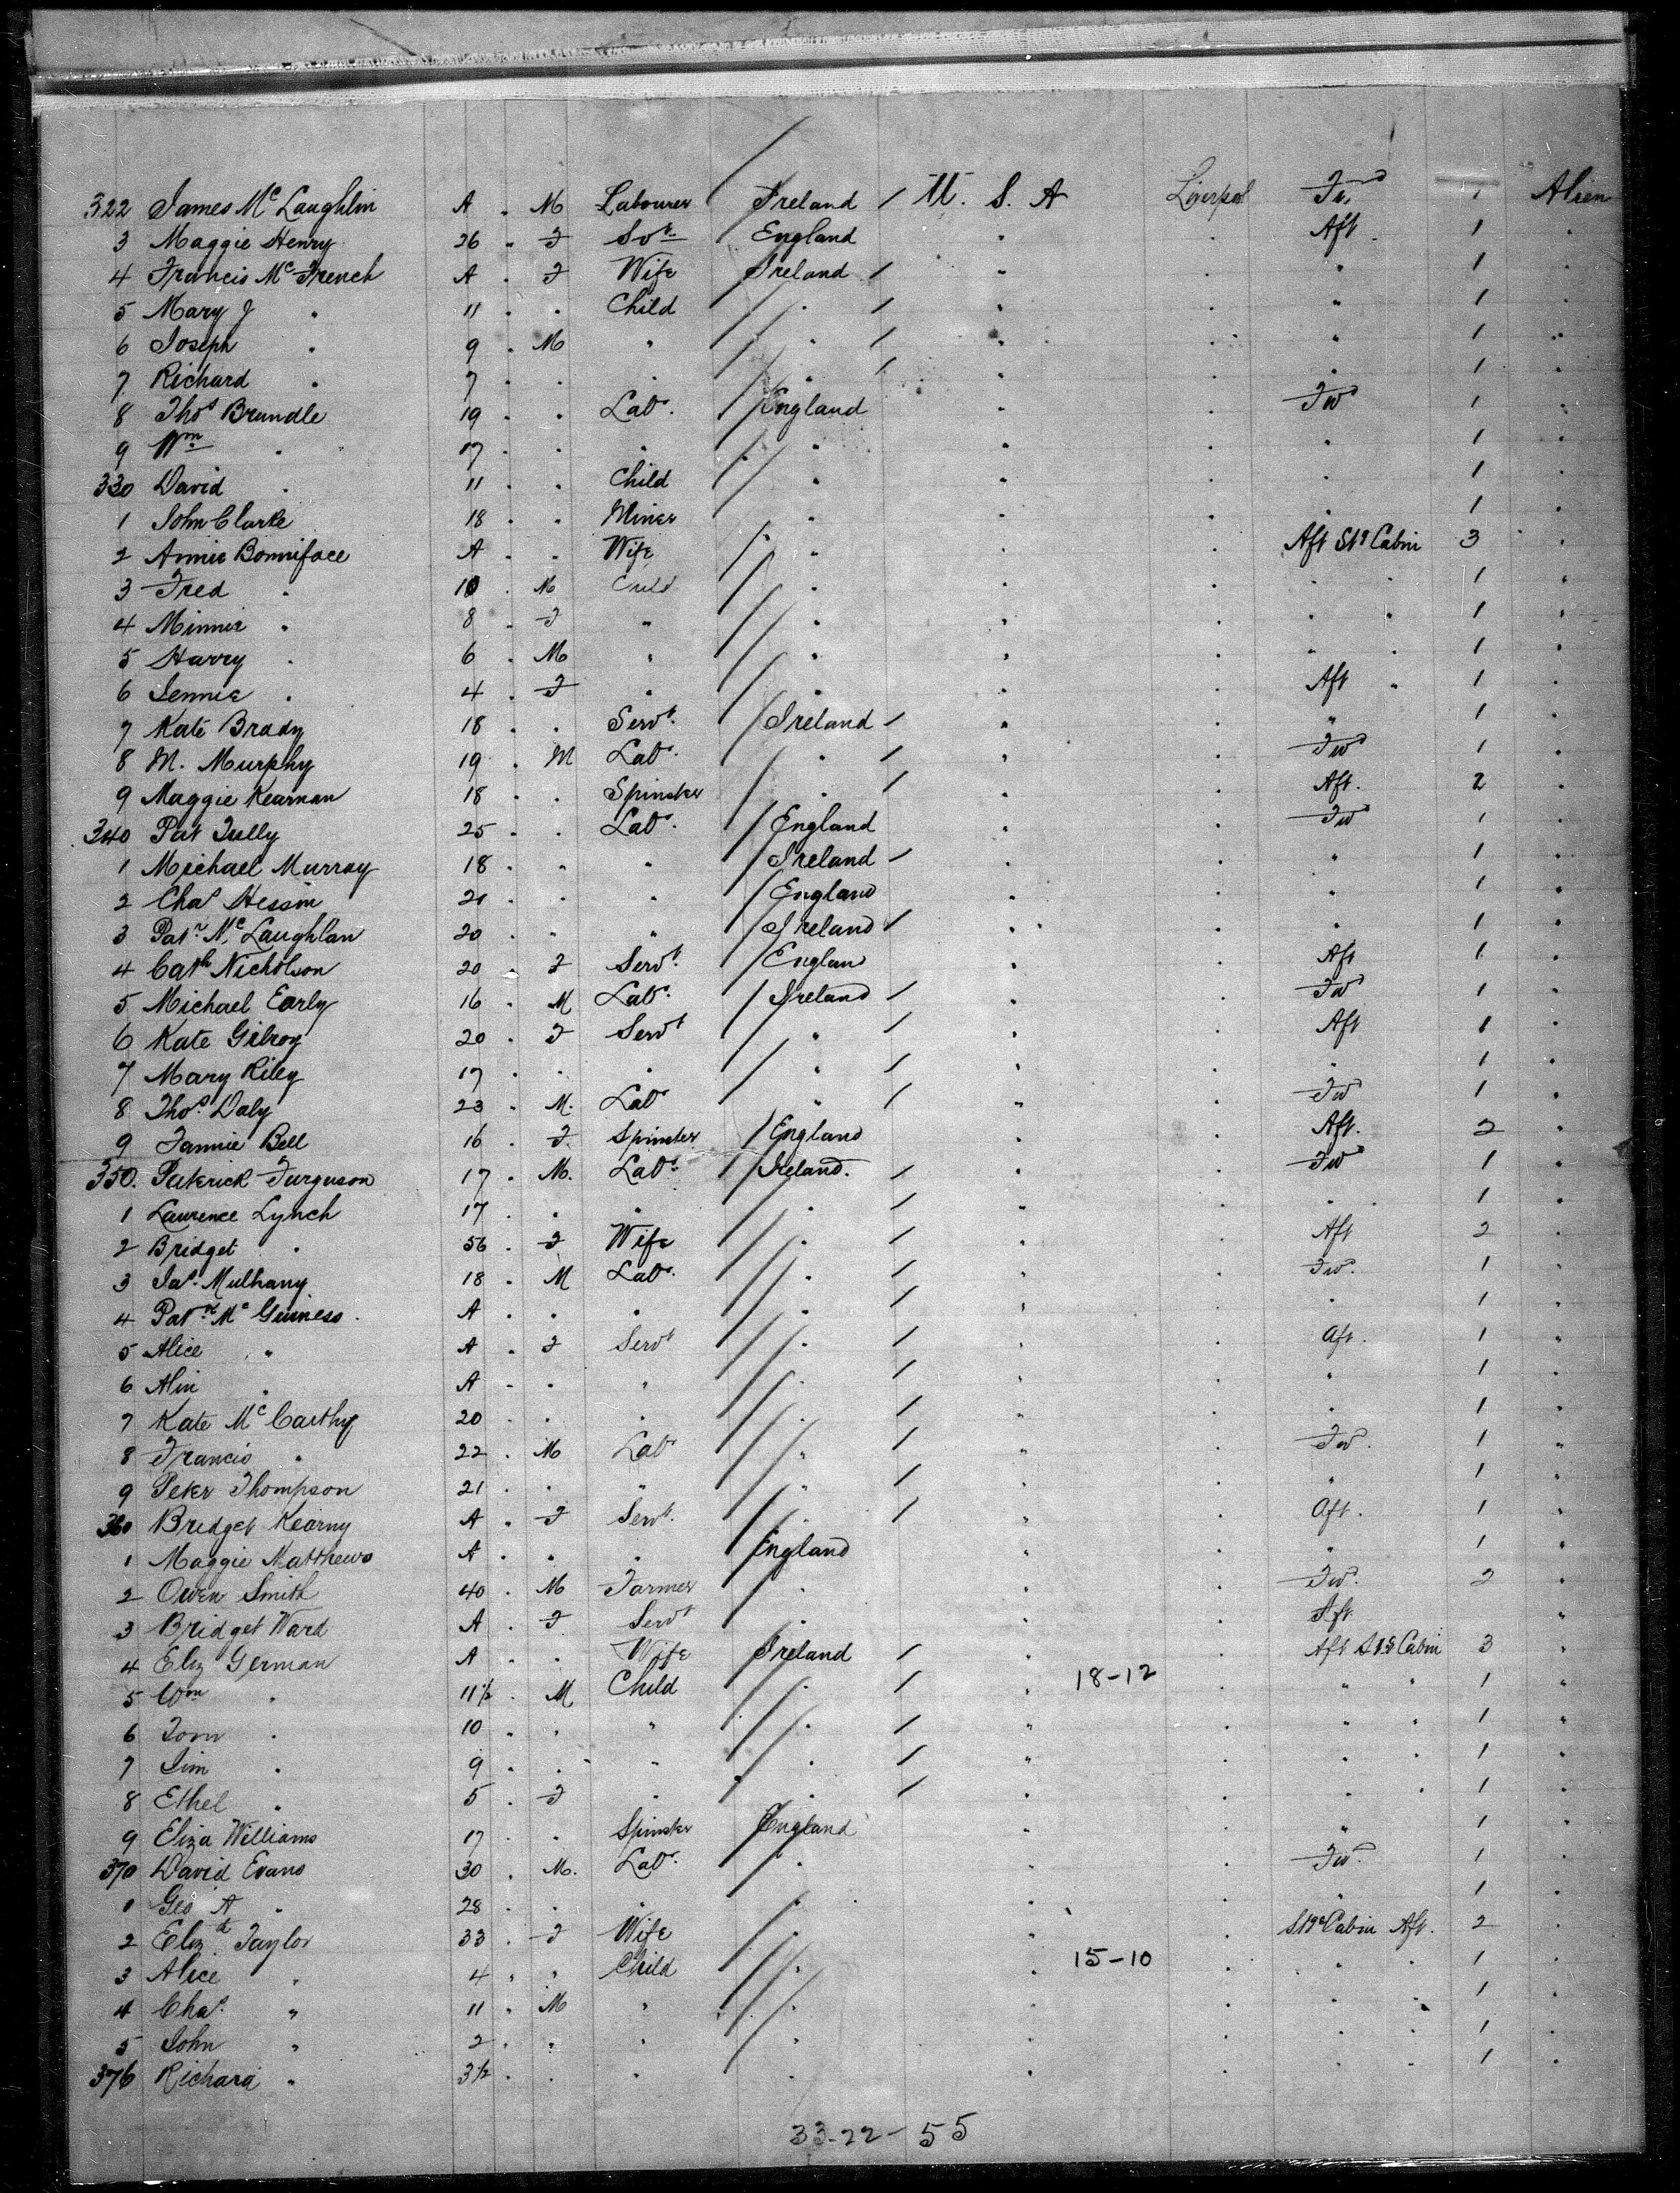 322 James Mc Laughlin A " M Labourer Ireland / U. S. A Liverpol Fw 1 Alien
3 Maggie Henry 26 " F Svt England " " Aft " 1 "
4 Francis Mc French A " F Wife Ireland / " " " 1 "
5 Mary J " 11 " " Child " / " " " 1 "
6 Joseph " 9 " M " " / " " " 1 "
7 Richard " 7 " " " " / " " " 1 "
8 Thos Brundle 19 " " Labr England " " Fwd 1 "
9 Wm " 17 " " " " " " " 1 "
330 David " 11 " " Child " " " " 1 "
1 John Clarke 18 " " Miner " " " " 1 "
2 Annie Bonniface A " " Wife " " " Aft Stg Cabin 3 "
3 Fred " 10 " M Child " " " " " 1 "
4 Minnie " 8 " F " " " " " " 1 "
5 Harry " 6 " M " " " " " " 1 "
6 Jennie " 4 " F " " " " Aft " 1 "
7 Kate Brady 18 " " Servt Ireland / " " " 1 "
8 M. Murphy 19 " M Labr " / " " Fwd 1 "
9 Maggie Kearnan 18 " " Spinster " / " " Aft. 2 "
340 Pat Tully 25 " " Labr England " " Fwd 1 "
1 Michael Murray 18 " " " Ireland / " " " 1 "
2 Chas Hessin 21 " " " England " " " 1 "
3 Patk Mc Laughlan 20 " " " Ireland / " " " 1 "
4 Cath Nicholson 20 " F Servt Englan " " Aft 1 "
5 Michael Early 16 " M Labr Ireland / " " Fwd 1 "
6 Kate Gilroy 20 " F Servt " / " " Aft 1 "
7 Mary Riley 17 " " " " / " " " 1 "
8 Thos Daly 23 " M. Labr " / " " Fwd 1 "
9 Fannie Bell 16 " F Spinster England " " Aft. 2 "
350. Patrick Furguson 17 " M. Labr Ireland. / " " Fwd 1 "
1 Laurence Lynch 17 " " " " / " " " 1 "
2 Bridget " 56 " F Wife " / " " Aft 2 "
3 Jas. Mulhany 18 " M Labr " / " " Fwd. 1 "
4 Patk Mc Guiness A " " " " / " " " 1 "
5 Alice " A " F Servt " / " " Aft. 1 "
6 Alin " A " " " " / " " " 1 "
7 Kate Mc Carthy 20 " " " " / " " " 1 "
8 Francis " 22 " M Labr " / " " Fwd. 1 "
9 Peter Thompson 21 " " " " / " " " 1 "
360 Bridget Kearny A " F Servt " / " " Aft. 1 "
1 Maggie Matthews A " " " England " " " 1 "
2 Owen Smith 40 " M Farmer " " " Fwd. 2 "
3 Bridget Ward A " F Servt " " " Aft "
4 Eliz German A " " Wife Ireland / " " Aft Stg Cabin 3 "
5 Wm " 11½ " M Child " / " 18-12 " " " 1 "
6 Tom " 10 " " " " / " " " " 1 "
7 Jim " 9 " " " " / " " " " 1 "
8 Ethel " 5 " F " " / " " " " 1 "
9 Eliza Williams 17 " " Spinster England " " " 1 "
370 David Evans 30 " M. Labr " " " Fwd. 1 "
1 Geo A " 28 " " " " " " " 1 "
2 Elizth Taylor 33 " F Wife " " " Stge Cabin Aft. 2 "
3 Alice " 4 " " Child " " 15-10 " " " 1 "
4 Chas. " 11 " M " " " " " " 1 "
5 John " 2 " " " " " " " " 1 "
376 Richard " 3½ " " " " " " " " 1 "
33-22-55